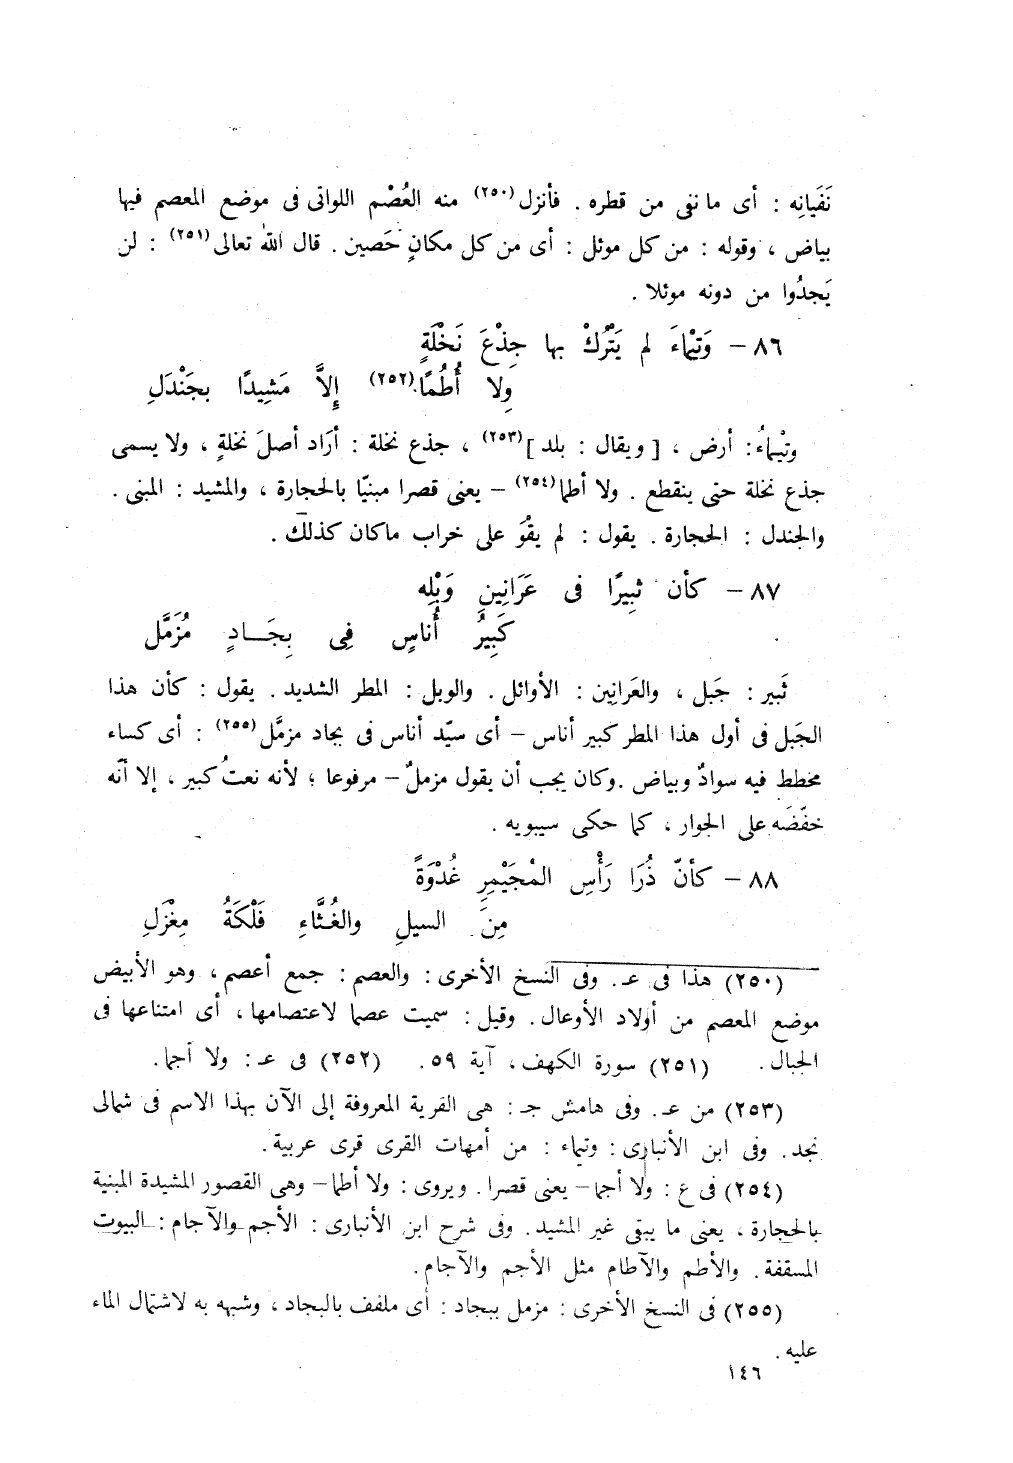 نَفَيانِه : أى ما نفى من قطره . فأنزل(٢٥٠) منه العُصْم اللواتى فى موضع المعصم فيها
بياض ، وقوله : من كل موئل : أى من كل مكانٍ حَصين . قال الله تعالى(٢٥١) : لن
يَجدُوا من دونه موئلا .
٨٦ – وَتَيْماءَ لم يَتْرُكْ بها جِذْعَ نَخْلَةٍ
ولا أُطُمًا(٢٥٢) إِلاَّ مَشِيدًا بجَنْدَلِ
وتيْماءُ : أرض ، [ ويقال : بلد ](٢٥٣) ، جذع نخلة : أرَاد أصلَ نخلةٍ ، ولا يسمى
جذع نخلة حتى ينقطع . ولا أطما(٢٥٤) – يعنى قصرا مبنيّا بالحجارة ، والمشيد : المبنى .
والجندل : الحجارة . يقول : لم يقْوَ على خراب ماكان كذلك .
٨٧ – كأن ثبِيرًا فى عَرَانِينِ وَبْلِه
كَبِيرُ أُناسٍ فِى بِجَـــادٍ مُزَمَّلِ
ثَبير : جَبل ، والعَرانِين : الأوائل . والوبل : المطر الشديد . يقول : كأن هذا
الجَبل فى أول هذا المطر كبير أناس – أى سيّد أناس فى بجاد مزمَّل(٢٥٥) : أى كساء
مخطط فيه سوادٌ وبياض . وكان يجب أن يقول مزملٌ – مرفوعا ؛ لأنه نعتُ كبير ، إلا أنّه
خفّضَه على الجوار ، كما حكى سيبويه .
٨٨ – كأنّ ذُرَا رَأْسِ المُجَيْمِرِ غُدْوَةً
مِنَ السيلِ والغُـثَّاءِ فَلْكَةُ مِغْزَلِ
(٢٥٠) هذا فى عـ. وفى النسخ الأخرى : والعصم : جمع أعصم ، وهو الأبيض
موضع المعصم من أولاد الأوعال . وقيل : سميت عصما لاعتصامها ، أى امتناعها فى
الجبال . (٢٥١) سورة الكهف ، آية ٥٩ . (٢٥٢) فى عـ : ولا أجما .
(٢٥٣) من عـ. وفى هامش جـ : هى القرية المعروفة إلى الآن بهذا الاسم فى شمالى
نجد . وفى ابن الأنبارى : وتيماء : من أمهات القرى قرى عربية .
(٢٥٤) فى ع : ولا أجما – يعنى قصرا . ويروى : ولا أطما – وهى القصور المشيدة المبنية
بالحجارة ، يعنى ما يبقى غير المشيد . وفى شرح ابن الأنبارى : الأجم والآجام : البيوت
المسقفة . والأطم والآطام مثل الأجم والآجام .
(٢٥٥) فى النسخ الأخرى : مزمل ببجاد : أى ملفف بالبجاد ، وشبهه به لاشتمال الماء
عليه .
١٤٦